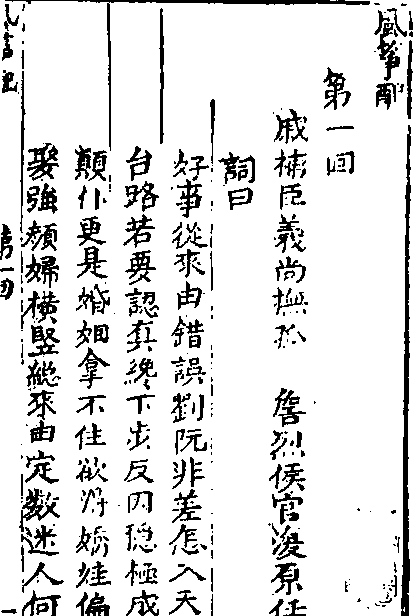 風箏配
第一回
戚補臣義尚撫孤 詹烈侯官復原任
詞曰
好事從來由錯誤劉阮非差怎入天
台路若要認真纔下步反因穏極成
顛仆更是婚姻拿不住欲淂嬌娃偏
娶強顏婦橫竪総來由定数迷人何
第一回